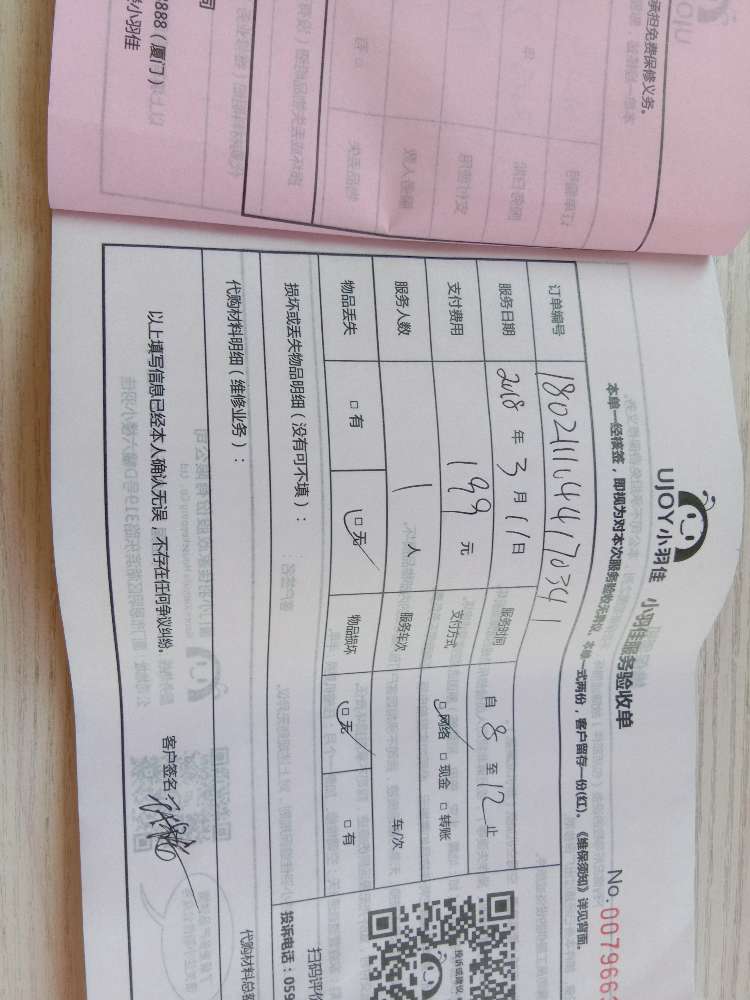 承担免费保修义务。
888（厦门）
小羽佳
UJOY小羽佳 小羽佳服务验收单
No. 0079663
本单一经核签，即视为对本次服务验收无异议，本单一式两份，客户留存一份(红)。《维保须知》详见背面。
订单编号 180211044170341
服务日期 2018 年 3 月 11 日 服务时间 自 8 至 12 止
支付费用 199 元 支付方式 □ 网络 □ 现金 □ 转账
服务人数 1 人 服务车次 车/次
物品丢失 □ 有 □ 无 物品损坏 □ 无 □ 有
损坏或丢失物品明细（没有可不填）：
代购材料明细（维修业务）：
代购材料总
以上填写信息已经本人确认无误，不存在任何争议纠纷。 客户签名：
投诉或建议
扫码评价
投诉电话：059